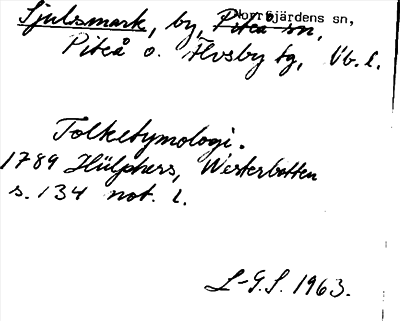 Sjulsmark, by, Piteå sn, Norrfjärdens sn,
Piteå o. Älvsby tg, Vb. l.
Folketymologi.
1789 Hülphers, Westerbotten
s. 134 not. 1.
L-G.S. 1963.